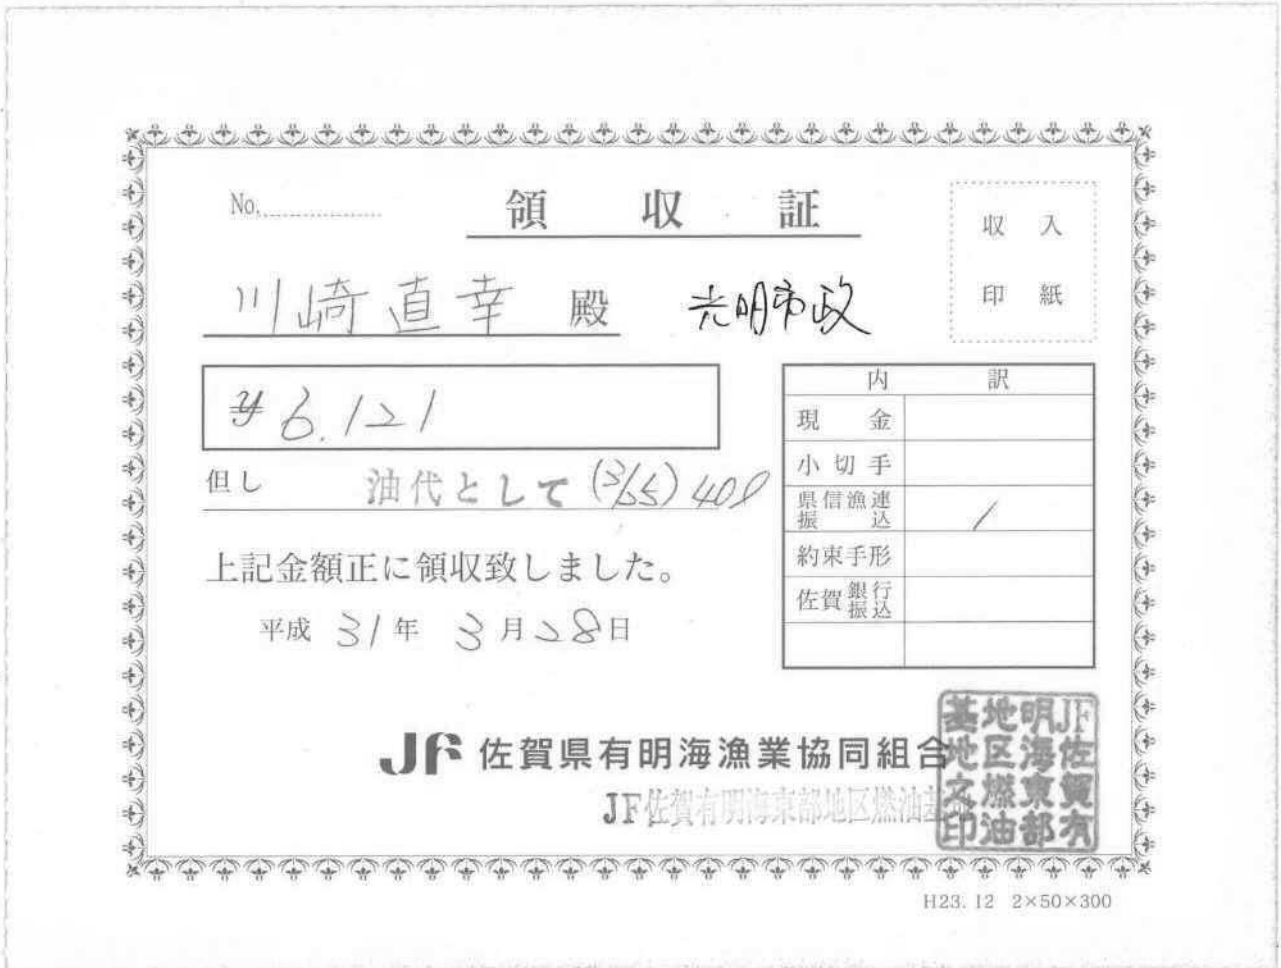 No.
領収証
収入
印紙
川崎直幸 殿 光明市政
¥6.121
但し 油代として(3/25) 40ℓ
上記金額正に領収致しました。
平成 31年 3月28日
内訳
現金
小切手
県信漁連
振込 /
約束手形
佐賀銀行
振込
JF 佐賀県有明海漁業協同組合
JF佐賀有明海東部地区燃油基地
JF佐賀有
明海東部
地区燃油
基地之印
H23.12 2×50×300